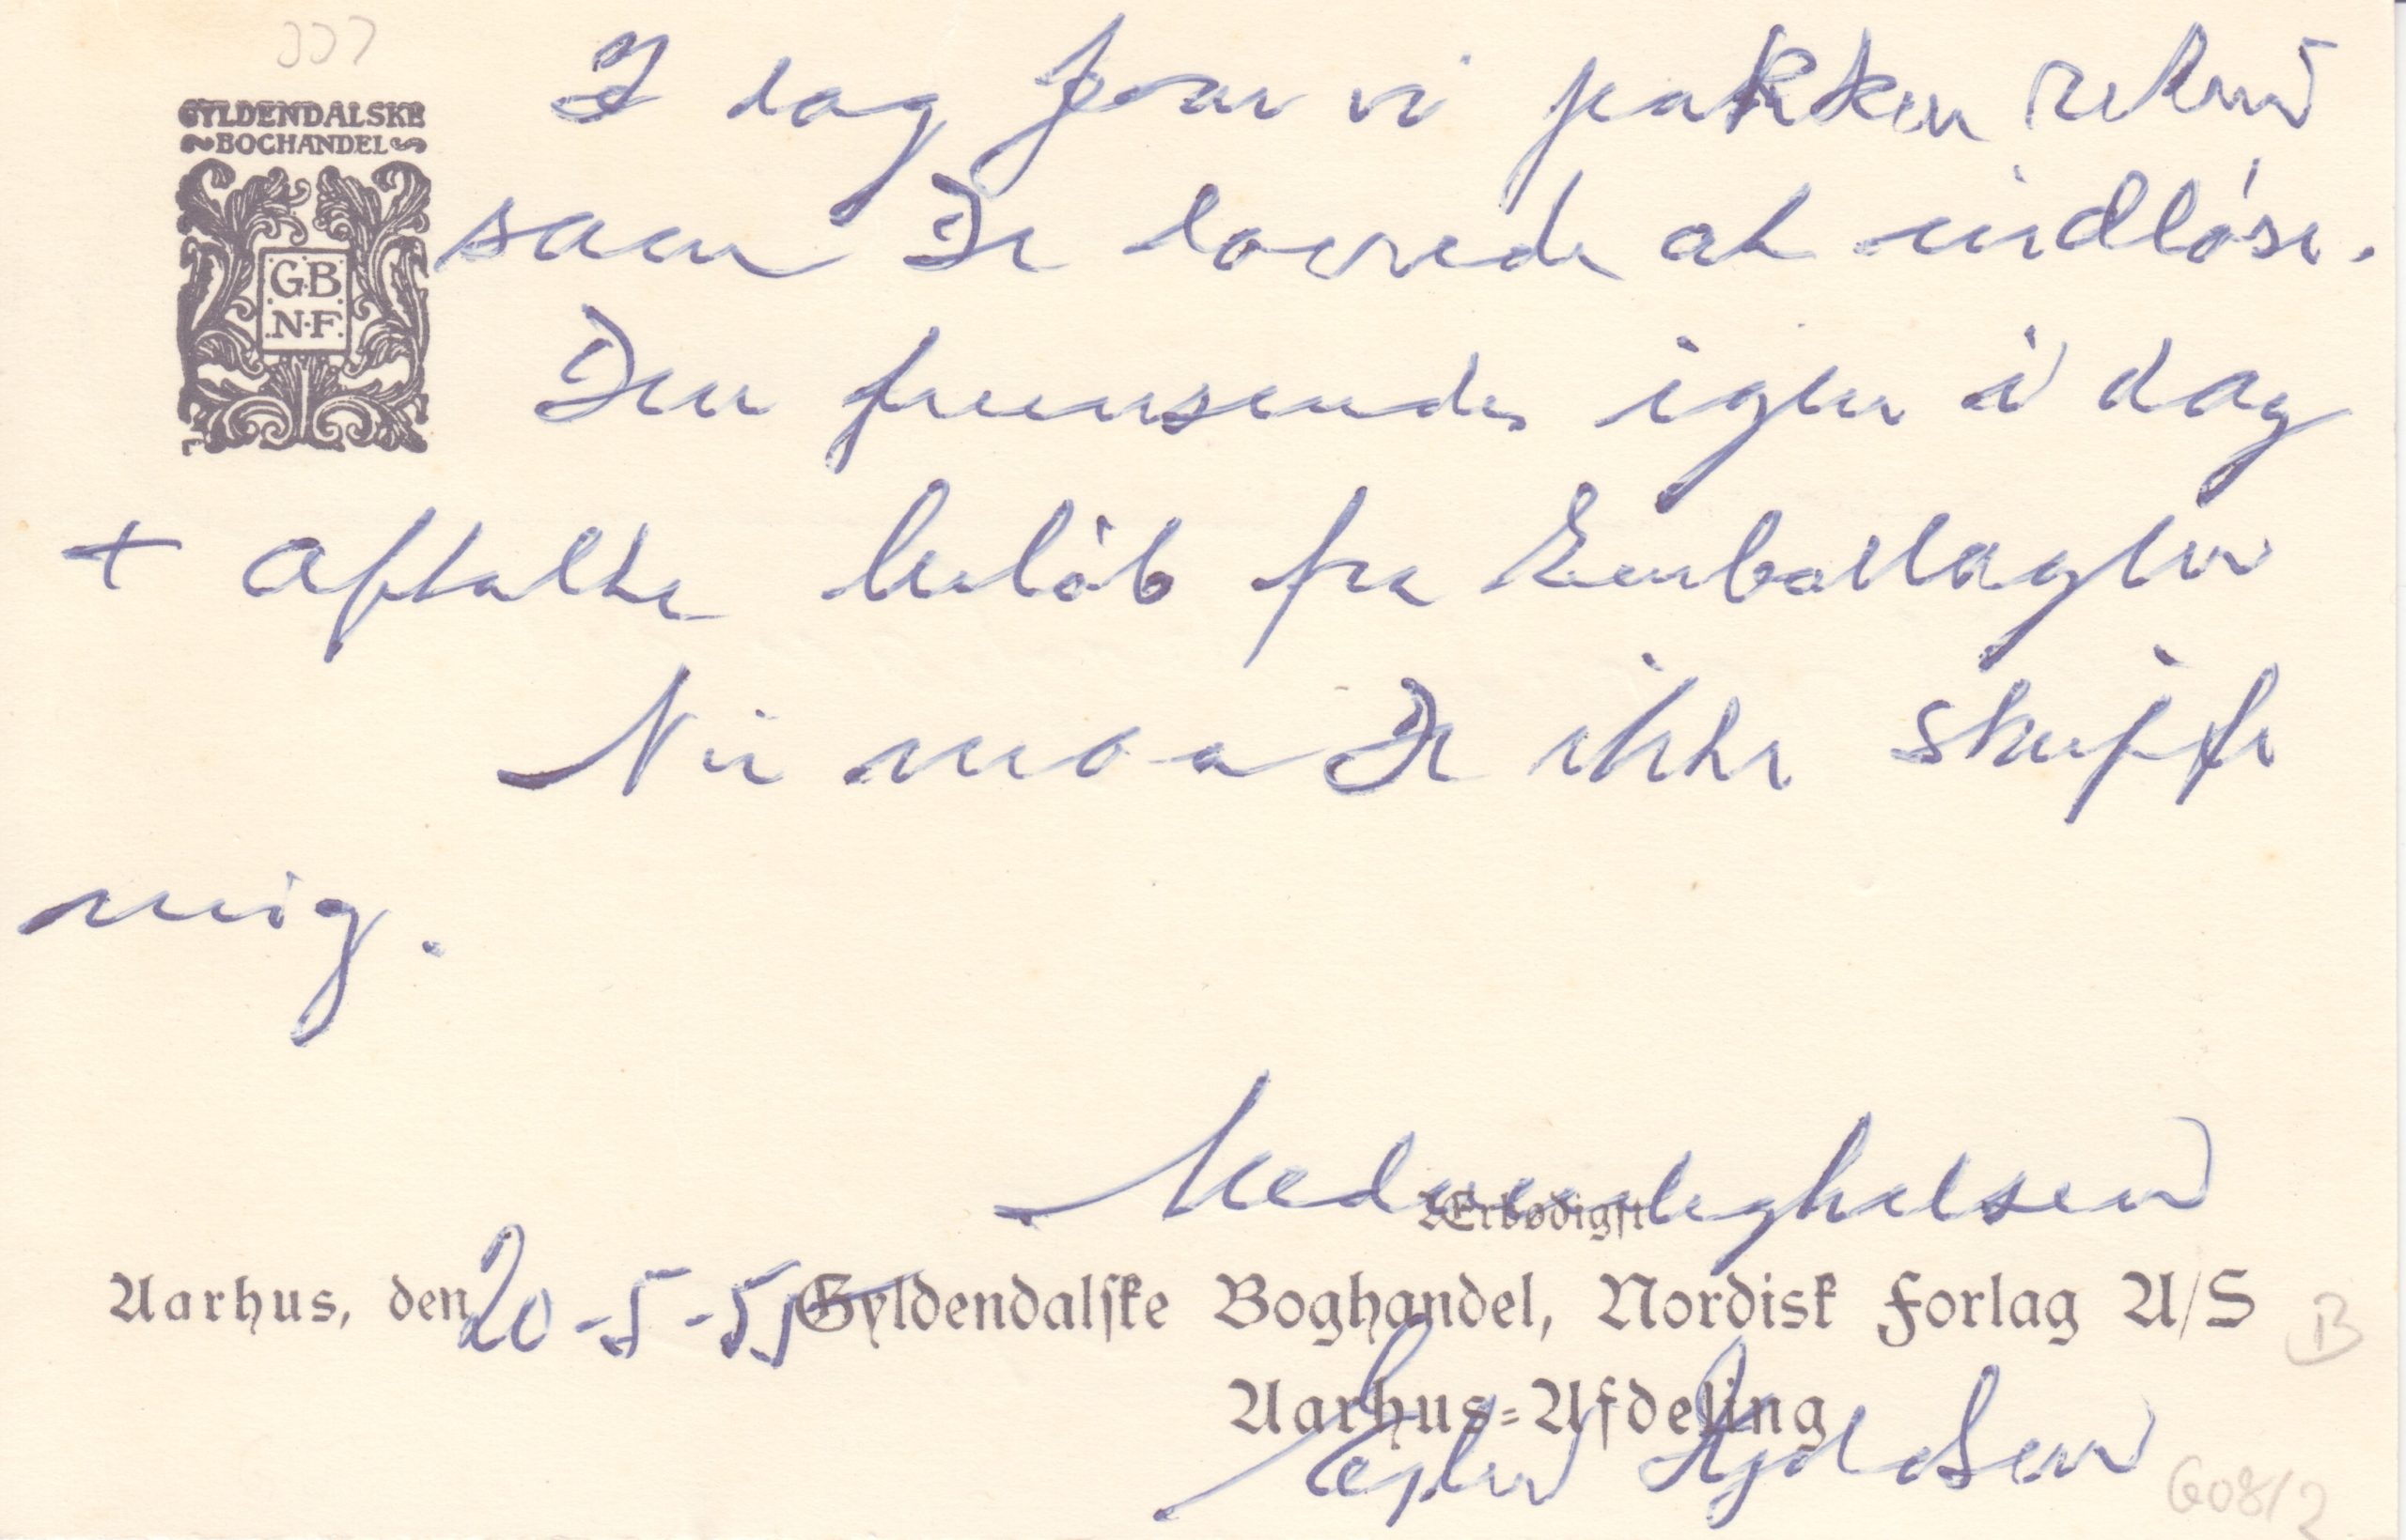 GYLDENDALSKE
BOGHANDEL
G·B
N·F
I dag faar vi pakken retur
som De lovede at indløse.
Den fremsendes igen i dag
+ aftalte beløb fra Emballagen
Nu maa De ikke skuffe
mig.
Med venlig hilsen
Ærbødigst
Aarhus, den 20-5-55 Gyldendalske Boghandel, Nordisk Forlag A/S
Aarhus-Afdeling
B
608/2